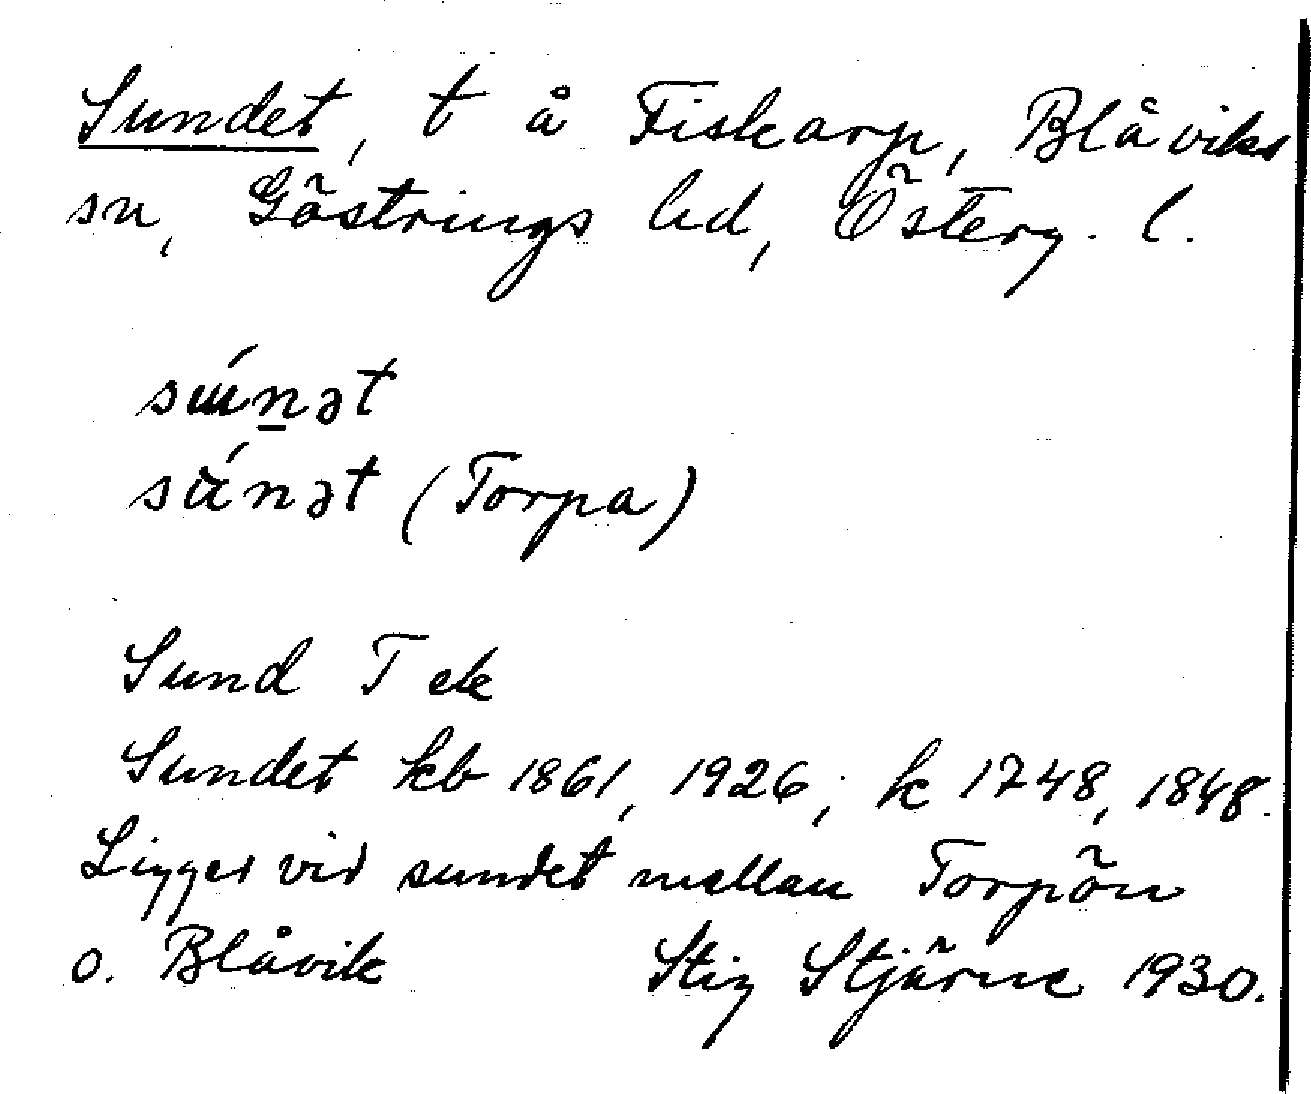 Sundet, t å Fiskarp, Blåviks
sn, Göstrings hd, Österg. l.
sɯ́n̲ət
(Torpa)
Sund T ek
Sundet kb 1861, 1926; k 1748, 1848.
Ligger vid sundet mellan Torpön
o. Blåvik Stig Stjärne 1930.